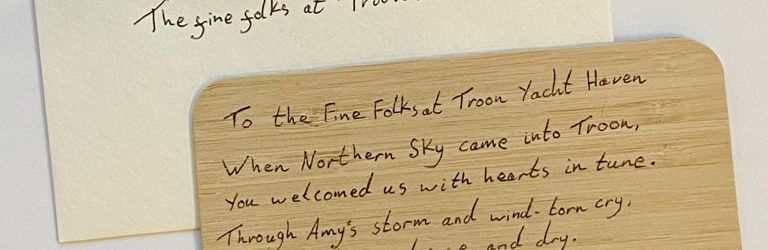 The fine folks at
To the Fine Folks at Troon Yacht Haven
When Northern Sky came into Troon,
You welcomed us with hearts in tune.
Through Amy's storm and wind-torn cry,
and dry.